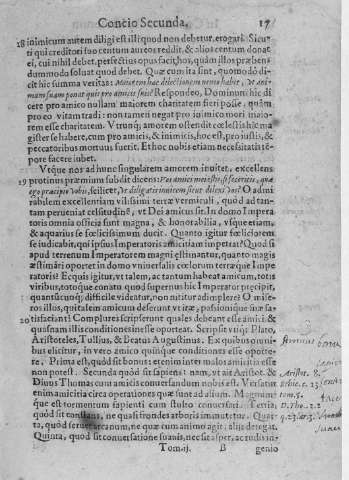 Concio Secunda. 17
28 inimicum autem diligi est illi quod non debetur, erogari. Sicu-
ti qui creditori suo centum aureos reddit, & alios centum donat
ei, cui nihil debet, perfectius opus facit hos, quàm illos præbens
dummodo soluat quod debet. Quæ cum ita sint, quomodò di-
cit hîc summa veritas: Maiorem hac dilectionem nemo habet, & ani-
mam suam ponat quis pro amicis suis? Respondeo, Dominum hîc di
cere pro amico nullam maiorem charitatem fieri posse, quàm
pro eo vitam tradi: non tamen negat pro inimico mori maio-
rem esse charitatem. Vtrunq; amorem ostendit cœlestis hic ma
gister se habere, cum pro amicis, & inimicis, hoc est, pro iustis, &
peccatoribus mortuus fuerit. Et hoc nobis etiam necessitatis tē-
pore facere iubet.
Vtque nos ad hunc singularem amorem inuitet, excellens
19 protinus præmium subdit dicens: Vos amici mei estis, si feceritis, quæ
ego præcipio vobis, scilicet, Vt diligatis inuicem sicut dilexi vos? O admi
rabilem excellentiam vilissimi terræ vermiculi, quòd ad tan-
tam perueniat celsitudinē, vt Dei amicus sit. In domo Impera
toris omnia officia sunt magna, & honorabilia, vsque etiam,
& aquarius se fœlicissimum ducit. Quanto igitur fœliciorem
se iudicabit, qui ipsius Imperatoris amicitiam impetrat? Quod si
apud terrenum Imperatorem magni æstimantur, quanto magis
æstimari oportet in domo vniuersalis cœlorum terræque Impe
ratoris? Ecquis igitur, vt talem, ac tantum habeat amicum, totis
viribus, totoque conatu quod supernus hic Imperator præcipit,
quantũcuoq; difficile videatur, non nititur adimplere? O mise-
ros illos, qui talem amicum deserunt vt iræ, passionique suæ sa-
20 tisfaciant! Complures scripserunt quales debeant esse amici &
quasnam illi conditiones inesse oporteat. Scripsit vtiq; Plato,
Aristoteles, Tullius, & Beatus Augustinus. Ex quibus omni-
bus elicitur, in vero amico quinque conditiones esse oporte-
re. Prima est, quòd sit bonus: etenim inter malos amicitia esse
non potest. Secunda quòd sit sapiens: nam, vt ait Aristot. &
Diuus Thomas cum amicis conuersandum nobis est. Versatur
enim amicitia circa operationes quæ sunt ad alium. Magnum
que est tormentum sapienti cum stulto conuersari. Tertia,
quòd sit constans, ne quasi frondes arboris immutetur. Quar-
ta, quòd seruet arcanum, ne quæ cum animo agit, alijs detegat.
Quinta, quòd sit conuersatione suauis, nec sit asper, ac rudis in-
Tomaj. B genio
Aristot. 8.
ethic. c. 13.
tom. 5.
D. Tho. 2. 2
q. 23. ar. 3.